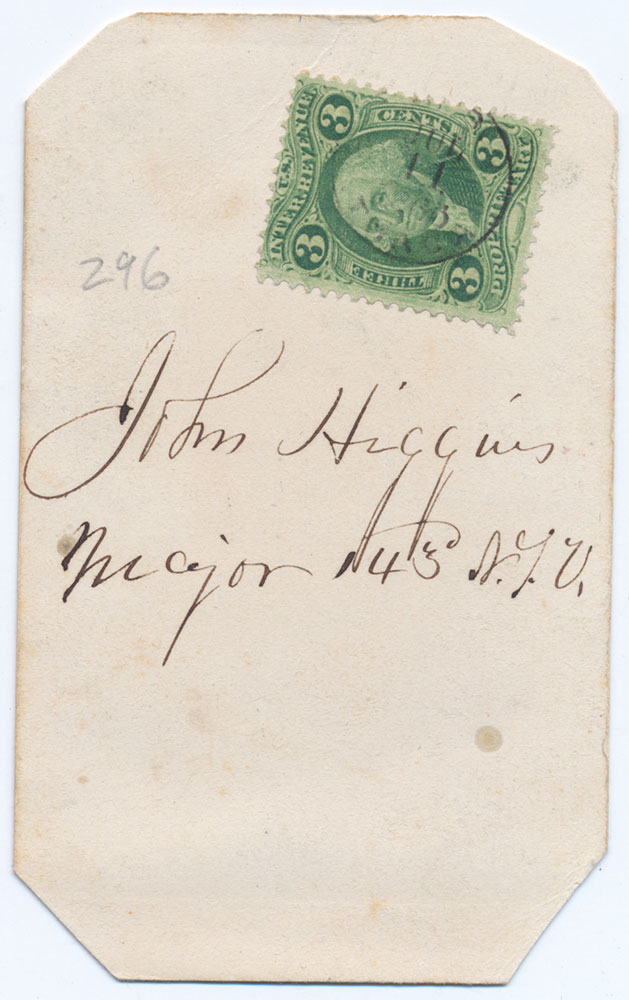 U.S. INTER. REVENUE
3 CENTS 3
PROPRIETARY
3 THREE 3
JUL
11
296
John Higgins
Major 143 N.Y.V.